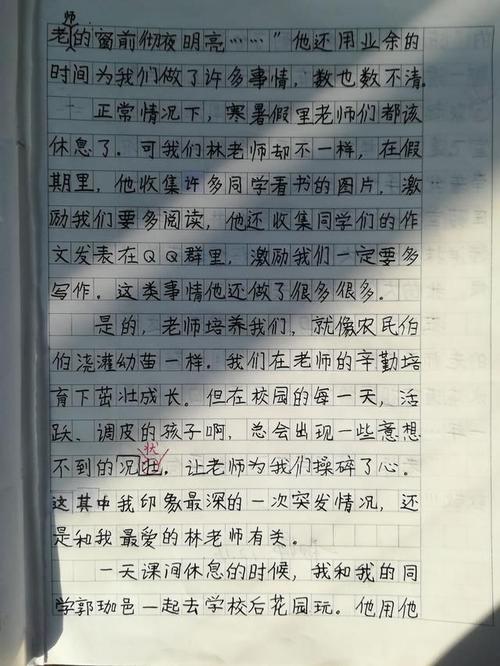 老师的窗前彻夜明亮……”他还用业余的
时间为我们做了许多事情，数也数不清。
正常情况下，寒暑假里老师们都该
休息了。可我们林老师却不一样，在假
期里，他收集许多同学看书的图片，激
励我们要多阅读，他还收集同学们的作
文发表在QQ群里，激励我们一定要多
写作。这类事情他还做了很多很多。
是的，老师培养我们，就像农民伯
伯浇灌幼苗一样。我们在老师的辛勤培
育下茁壮成长。但在校园的每一天，活
跃、调皮的孩子啊，总会出现一些意想
状
不到的况壮。让老师为我们操碎了心。
这其中我印象最深的一次突发情况，还
是和我最爱的林老师有关。
一天课间休息的时候，我和我的同
学郭珈邑一起去学校后花园玩。他用他